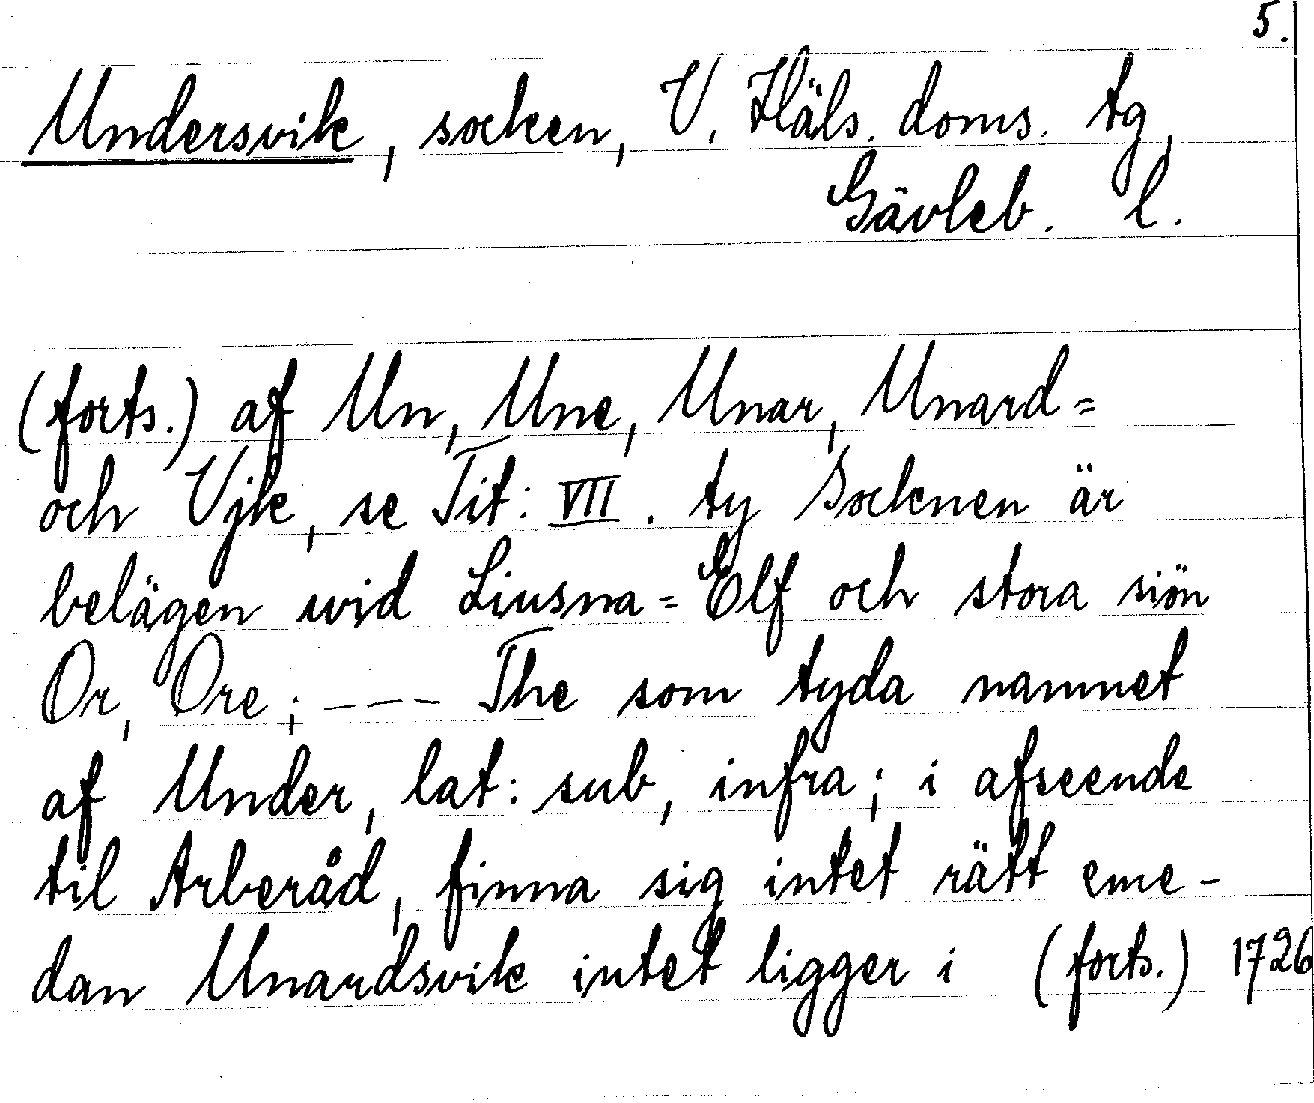 5.
Undersvik, socken, V. Häls. doms. tg,
Gävleb. l.
(forts.) af Un, Une, Unar, Unard=
och Vjk, se Tit: VII. ty Socknen är
belägen wid Liusna=Elf och stora siön
Or, Ore; ---- The som tyda namnet
af Under, lat: sub, infra; i afseende
til Arberåd, finna sig intet rätt eme-
dan Unardsvik intet ligger i (forts.) 1726